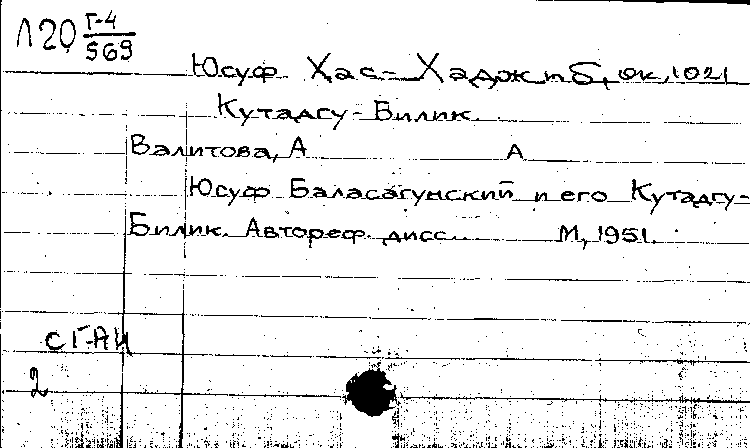 Л20 Г-4
569
Юсуф Хас-Хаджиб, ок, 1021
Кутадгу-Билик.
Валитова, А А
Юсуф Баласагунский и его Кутадгу-
Билик. Автореф. дисс. М, 1951.
СГАИ
2